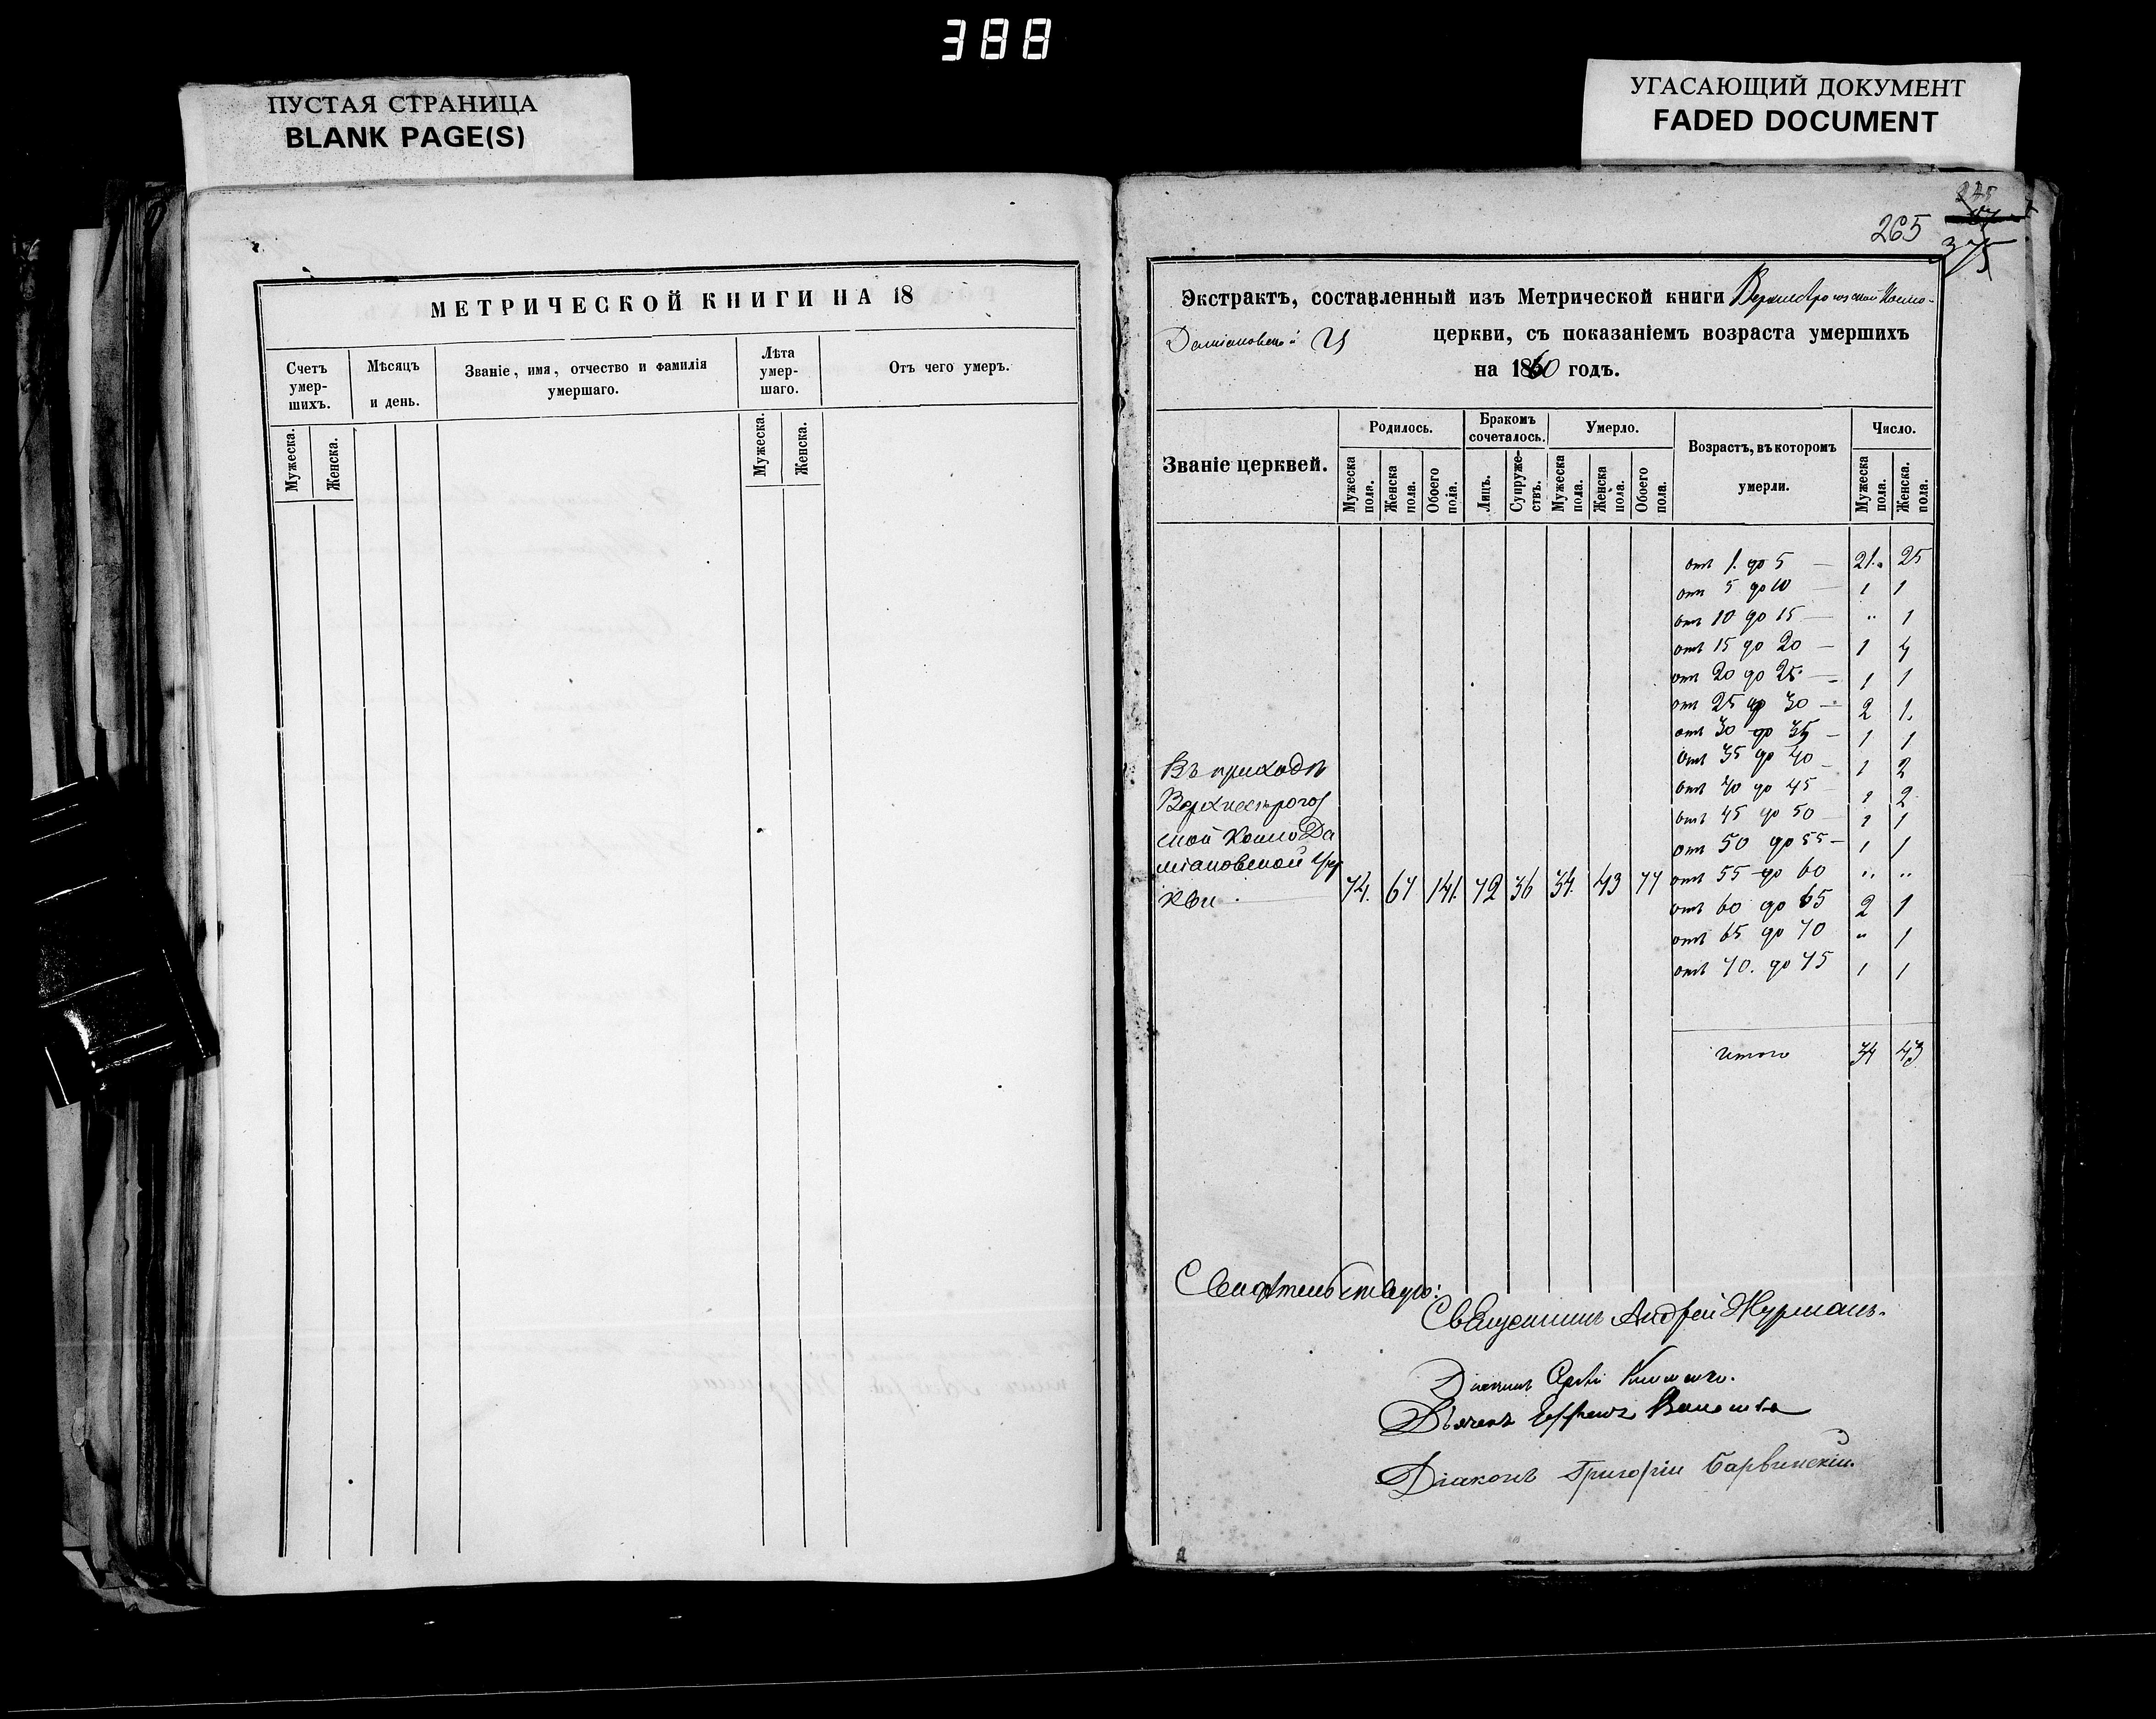 388
ПУСТАЯ СТРАНИЦА
BLANK PAGE(S)
УГАСАЮЩИЙ ДОКУМЕНТ
FADED DOCUMENT
265
375
МЕТРИЧЕСКОЙ КНИГИ НА 18
Счетъ умер- шихъ.
Мѣсяцъ и день.
Званіе, имя, отчество и фамилія умершаго.
Лѣта умер- шаго.
Отъ чего умеръ.
Мужеска.
Женска.
Мужеска.
Женска.
Экстрактъ, составленный изъ Метрической книги
Даміановской Ц церкви, съ показаніемъ возраста умершихъ
на 1860 годъ.
Званіе церквей.
Родилось.
Бракомъ сочеталось.
Умерло.
Возрастъ, въ которомъ умерли.
Число.
Мужеска пола.
Женска пола.
Обоего пола.
Лицъ.
Супруже- ствъ.
Мужеска пола.
Женска пола.
Обоего пола.
Мужеска пола.
Женска пола.
отъ 1. до 5 — 21. 25
отъ 5 до 10 — 1 1
отъ 10 до 15 — " 1
отъ 15 до 20 — 1 4
отъ 20 до 25 — 1 1
отъ 25 до 30 — 2 1.
отъ 30 до 35 — 1 1
отъ 35 до 40 — 1 2
отъ 40 до 45 1 2
отъ 45 до 50 — 1 1
отъ 50 до 55 — 1 1
отъ 55 до 60 " "
отъ 60 до 65 2 1
отъ 65 до 70 " 1
отъ 70. до 75 1 1
Въ приходѣ
Верхнестрогоз
ской Космо Да
міановской Цер
кви 74. 67 141. 72 36 34. 43 77
итого 34 43
Свидѣтельствую:
Священникъ Андрей Журманъ.
Діаконъ Григорій Барвинскій